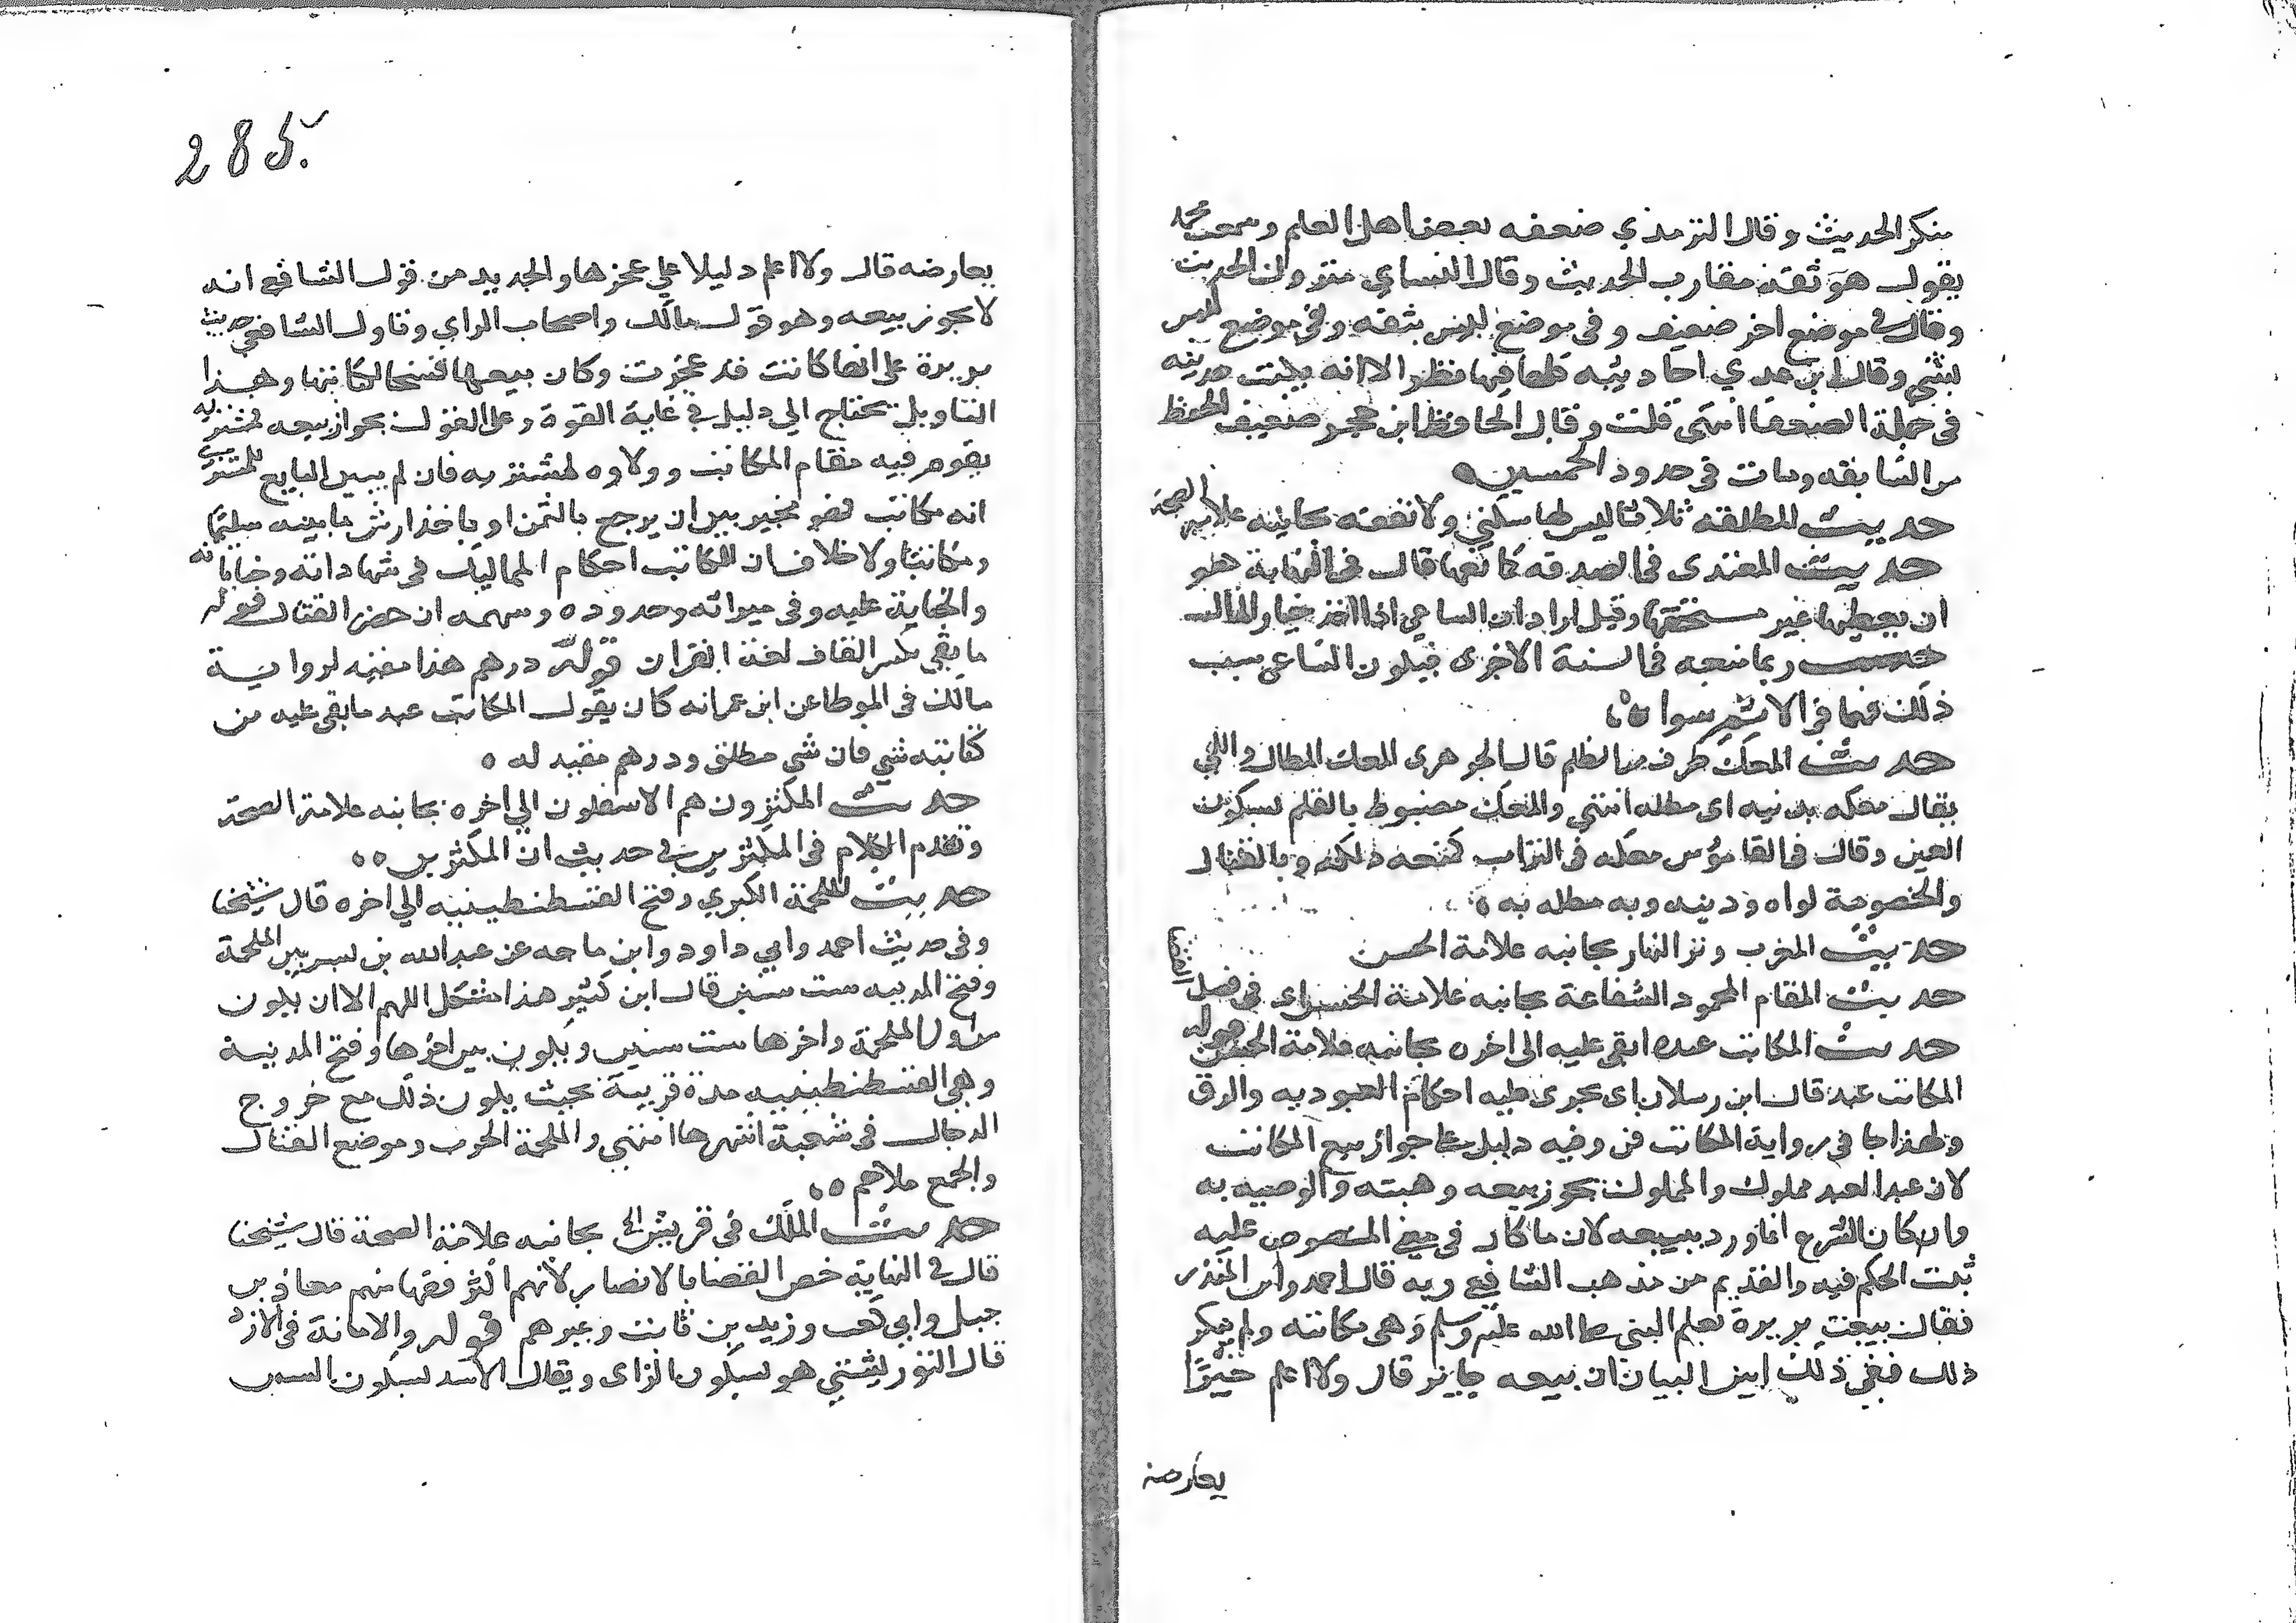 منكر الحديث وقال الترمذي ضعفه بعض اهل العلم وسمعت محمد
يقول هو ثقة مقارب الحديث وقال النساي متروك الحديث
وقال في موضع اخر ضعيف وفي موضع ليس بثقه وفي موضع ليس
بشي وقال ابن عدي احاديثه كلها فيها نظر الا انه يكتب حديثه
في جملة الضعفا انتهى قلت وقال الحافظ ابن حجر ضعيف الحفظ
من السابقه ومات في حدود الخمسين
حديث المطلقه ثلاثا ليس لها سكني ولا نفقه بجانبه علامة الصحة
حديث المعتدى في الصدقه كمانعها قال في النهاية هو
ان يعطيها غير مستحقها وقيل اراد ان الساعي اذا اخذ خيار المال
ربما منعه في السنة الاخرى فيكون الساعي سبب
ذلك فهما في الاثم سوا
حديث المعك طرف من الظلم قال الجوهرى المعك المطال واللي
يقال معكه بدينه اى مطله انتهي والمعك مضبوط بالقلم بسكون
العين وقال في القاموس معكه في التراب كمنعه دلكه وبالقتال
والخصومة لواه ودينه وبه مطله به
حديث المغرب وتر النهار بجانبه علامة الحسن
حديث المقام المحمود الشفاعة بجانبه علامة الحسن اى في فصل القضا
حديث المكاتب عبد ما بقى عليه الى اخره بجانبه علامة الحسن قوله
المكاتب عبد قال ابن رسلان اى يجرى عليه احكام العبوديه والرق
ولهذا جا في رواية المكاتب قن وفيه دليل على جواز بيع المكاتب
لان عبد العبد مملوك والمملوك يجوز بيعه وهبته والوصيه به
وان كان الشرع انما ورد ببيعه لان ما كان في معنى المنصوص عليه
ثبت الحكم فيه والقديم من مذهب الشافعي وبه قال احمد وابن المنذر
فقال بيعت بريرة بعلم النبي صلى الله عليه وسلم وهي مكاتبه ولم ينكر
ذلك ففي ذلك ابين البيان ان بيعه جايز قال ولا اعلم خبرًا
يعارضه
285
يعارضه قال ولا اعلم دليلا علي عجزها والجديد من قول الشافعي انه
لا يجوز بيعه وهو قول مالك واصحاب الراي وتاول الشافعي حديث
بريرة على انها كانت قد عجزت وكان بيعها فسخا لكتابتها وهذا
التاويل يحتاج الي دليل في غاية القوة وعلى القول بجواز بيعه لمشتريه
يقوم فيه مقام المكاتب وولاوه لمشتريه فان لم يبين البايع للمشتري
انه مكاتب فهو مخير بين ان يرجع بالثمن او ياخذ ارش ما بينه سليما
ومكاتبا ولا خلاف ان للمكاتب احكام المماليك في شهاداته وجناياته
والجناية عليه وفي ميراثه وحدوده وسهمه ان حضر القتال قوله
ما بقي بكسر القاف لغة القران قوله درهم هذا مقيد لرواية
مالك في الموطا عن ابن عمر انه كان يقول المكاتب عبد ما بقي عليه من
كتابته شي فان شي مطلق ودرهم مقيد له
حديث المكثرون هم الاسفلون الي اخره بجانبه علامة الصحة
وتقدم الكلام في المكثرين في حديث ان المكثرين
حديث الملحمة الكبري وفتح القسطنطينيه الي اخره قال شيخنا
وفي حديث احمد وابي داود وابن ماجه عن عبد الله بن بسر بين الملحمة
وفتح المدينه ست سنين قال ابن كثير هذا مشكل اللهم الا ان يكون
من اول الملحمة واخرها ست سنين ويكون بين اخرها وفتح المدينة
وهي القسطنطينيه مدة قريبة بحيث يكون ذلك مع خروج
الدجال في سبعة اشهر ها انتهي والملحمة الحرب وموضع القتال
والجمع ملاحم
حديث الملك في قريش الخ بجانبه علامة الصحة قال شيخنا
قال في النهاية خص القضا بالانصار لانهم اكثر فقها منهم معاذ بن
جبل وابي كعب وزيد بن ثابت وغيرهم قوله والامانة في الازد
قال التوربشتي هو بسكون الزاى ويقال الاسد بسكون السين